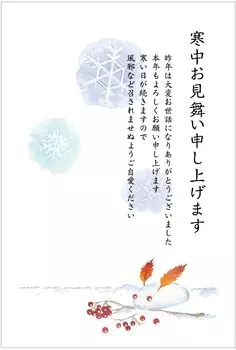 寒中お見舞い申し上げます
昨年は大変お世話になりありがとうございました
本年もよろしくお願い申し上げます
寒い日が続きますので
風邪など召されませぬようご自愛ください